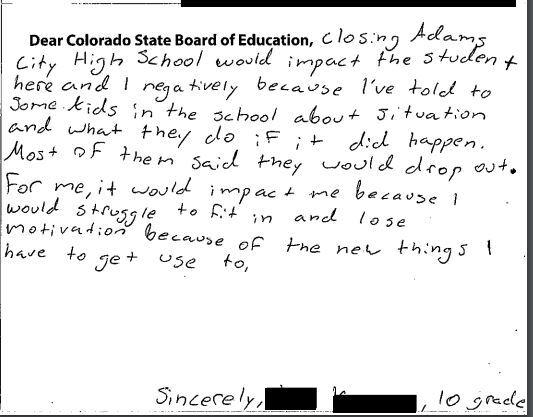 Dear Colorado State Board of Education, closing Adams
City High School would impact the student
here and I negatively because I've told to
some kids in the school about situation
and what they do if it did happen.
Most of them said they would drop out.
For me, it would impact me because I
would struggle to fit in and lose
motivation because of the new things I
have to get use to,
Sincerely, , 10 grade